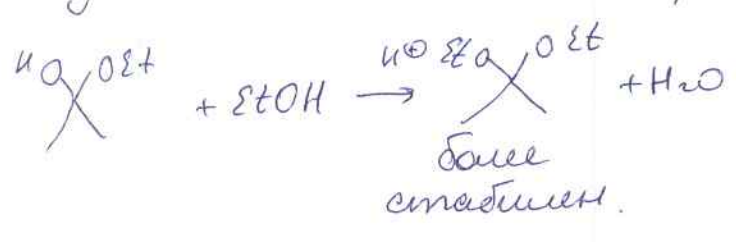 HO OEt + EtOH → H⊕ EtO OEt + H₂O
более
стабилен.